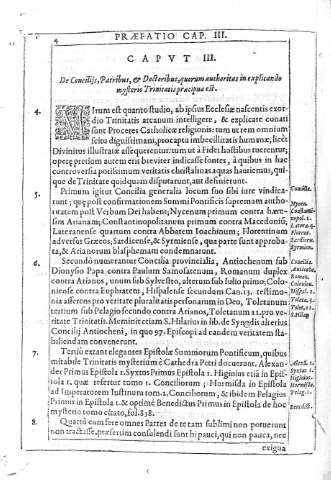 4 PRÆFATIO CAP. III.
CAPVT III.
De Concilijs, Patribus, & Doctoribus, quorum authoritas in explicando
mysterio Trinitatis præcipua est.
4. Mirum est quanto studio, ab ipsius Ecclesiæ nascentis exor-
dio Trinitatis arcanum intelligere, & explicare conati
sunt Proceres Catholicæ religionis: tum ut rem omnium
scitu dignissimam, pro captu imbecillitatis humanæ, licèt
Divinitus illustratæ assequerentur: tum ut à Fidei hostibus tuerentur,
operę pretium autem erit breviter indicasse fontes, à quibus in hac
controversia potissimum veritatis christianas aquas hauriendi, qui-
que de Trinitate quidquam disputarunt, aut definierunt.
5. Primum igitur Concilia generalia locum sibi iure vindica- Concilia.
runt; que post confirmationem Summi Pontificis supremam autho-
ritatem post Verbum Dei habent; Nycenum primum contra hære- Nycen.
sim Arianam, Constantinopol. primum contra Macedoniū, Constanti-
nopol. 1.
Lateranense quartum contra Abbatem Ioachinum; Florentinum Latera. 4.
adversus Græcos, Sardicense, & Syrmiense, qua parte sunt approba- Florent.
Sardicen.
ta, & Arianorum blasphemiam condemnarunt. Syrmien.
6. Secundò numerantur Concilia provincialia, Antiochenum sub Concilia.
Dionysio Papa contra Paulum Samosatenum, Romanum duplex Antioche.
contra Arianos, unum sub Sylvestro, alterum sub Iulio primo, Colo- Roman.
niense contra Euphratem, Hispalense Secundum Can. 13. testimo- Colonien.
nia afferens pro veritate pluralitatis personarum in Deo, Toletanum Hispal. 2.
tertium sub Pelagio secundo contra Arianos, Toletanum 11. pro ve-
ritate Trinitatis. Meminit etiam S. Hilarius in lib. de Synodis alterius S. Hilar.
Concilij Antiocheni, in quo 97. Episcopi ad eandem veritatem sta-
biliendam convenerunt.
7. Tertiò extant elegantes Epistolæ Summorum Pontificum, quibus
mirabile Trinitatis mysterium è Cathedra Petri docuerunt. Alexan-
der Primus Epistola 1. Syxtus Primus Epistola 1. Higinius etiā in Epis-
tola 1. quæ refertur tomo 1. Conciliorum; Hormisda in Epistola
ad Imperatorem Iustinum tom. 2. Conciliorum, & ibidem Pelagius
Primus in Epistola 1. & optimè Benedictus Primus in Epistola de hoc
mysterio tomo citato, fol. 838. Benedict.
8. Quartò cum ferè omnes Patres de re tam sublimi non potuerunt
non tractasse, præsertim consulendi sunt hi pauci, qui non pauca, nec
exigua